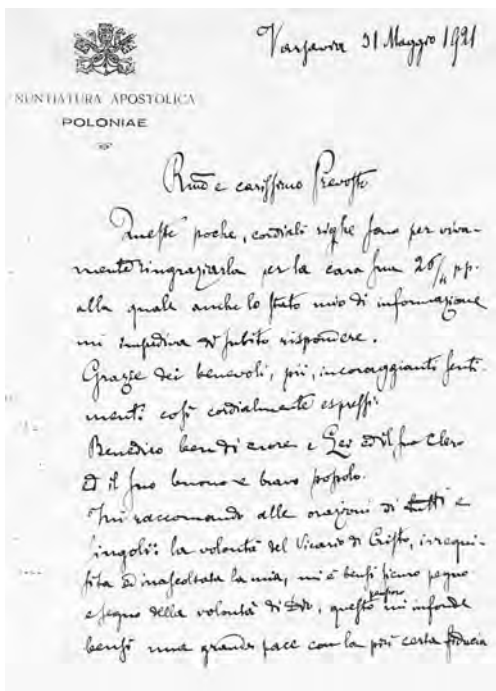 Varsavia 31 Maggio 1921
NUNTIATURA APOSTOLICA
POLONIAE
Rmo e carissimo Prevosto
Queste poche, cordiali righe sono per viva-
mente ringraziarla per la cara sua 26/4 pp.
alla quale anche lo stato mio di informazione
mi impediva di subito rispondere.
Grazie dei benevoli, pii, incoraggianti senti-
menti così cordialmente espressi.
Benedico ben di cuore e Lei ed il suo Clero
ed il suo buono e bravo popolo.
Mi raccomando alle orazioni di tutti e
singoli: la volontà del Vicario di Cristo, irrequi-
sita ed inascoltata la mia, mi è bensì sicuro pegno
e segno della volontà di Dio, questo pensiero mi infonde
bensì una grande pace con la più certa fiducia